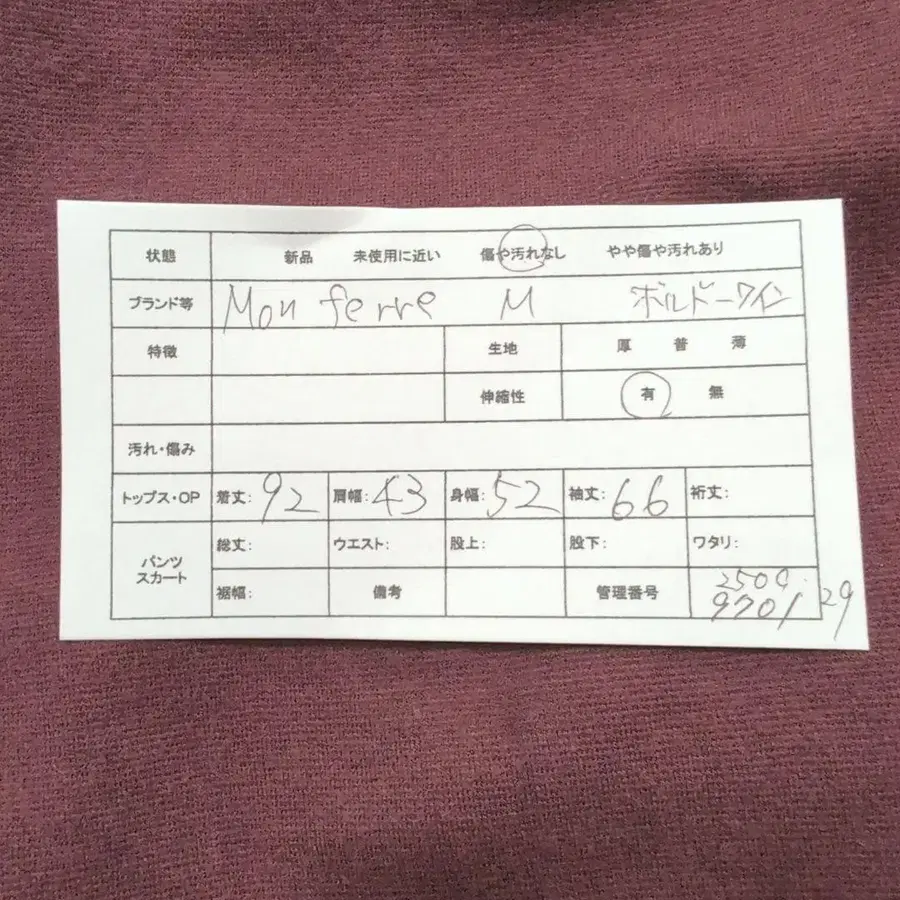 状態 新品 未使用に近い 傷や汚れなし やや傷や汚れあり
ブランド等 Mon ferre M ボルドーワイン
特徴 生地 厚 普 薄
伸縮性 有 無
汚れ・傷み
トップス・OP 着丈: 92 肩幅: 43 身幅: 52 袖丈: 66 裄丈:
パンツ スカート 総丈: ウエスト: 股上: 股下: ワタリ:
裾幅: 備考 管理番号 2509
9701 29